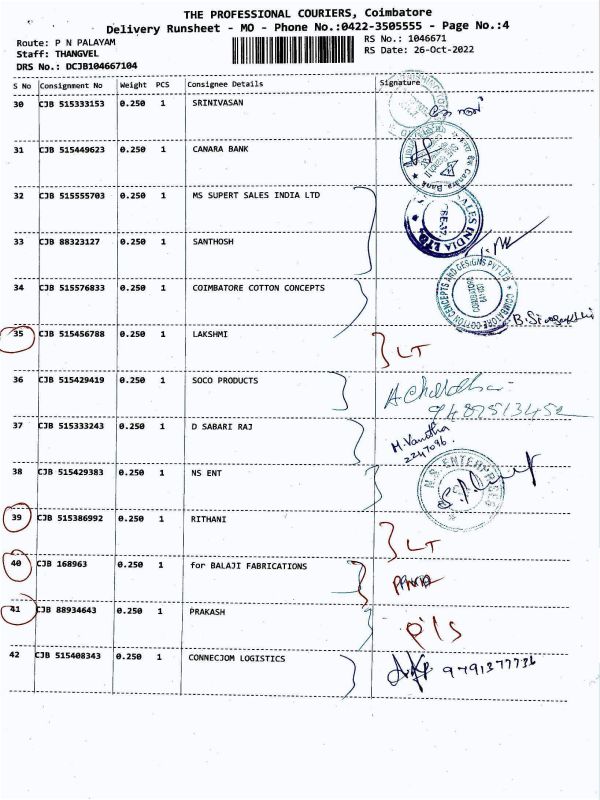 THE PROFESSIONAL COURIERS, Coimbatore
Delivery Runsheet - MO - Phone No.:0422-3505555 - Page No.:4
Route: P N PALAYAM
RS No.: 1046671
Staff: THANGVEL
RS Date: 26-Oct-2022
DRS No.: DCJB104667104
S No Consignment No Weight PCS Consignee Details Signature
30 CJB 515333153 0.250 1 SRINIVASAN
31 CJB 515449623 0.250 1 CANARA BANK
Canara Bank
32 CJB 515555703 0.250 1 MS SUPERT SALES INDIA LTD
SALES INDIA LTD
33 CJB 88323127 0.250 1 SANTHOSH
34 CJB 515576833 0.250 1 COIMBATORE COTTON CONCEPTS
COIMBATORE COTTON CONCEPTS AND DESIGNS PVT LTD
35 CJB 515456788 0.250 1 LAKSHMI LT
36 CJB 515429419 0.250 1 SOCO PRODUCTS
37 CJB 515333243 0.250 1 D SABARI RAJ
M. Vanitha
2247096.
38 CJB 515429383 0.250 1 NS ENT
N.S. ENTERPRISES
39 CJB 515386992 0.250 1 RITHANI LT
40 CJB 168963 0.250 1 for BALAJI FABRICATIONS
41 CJB 88934643 0.250 1 PRAKASH P/S
42 CJB 515408343 0.250 1 CONNECJOM LOGISTICS 9791377736